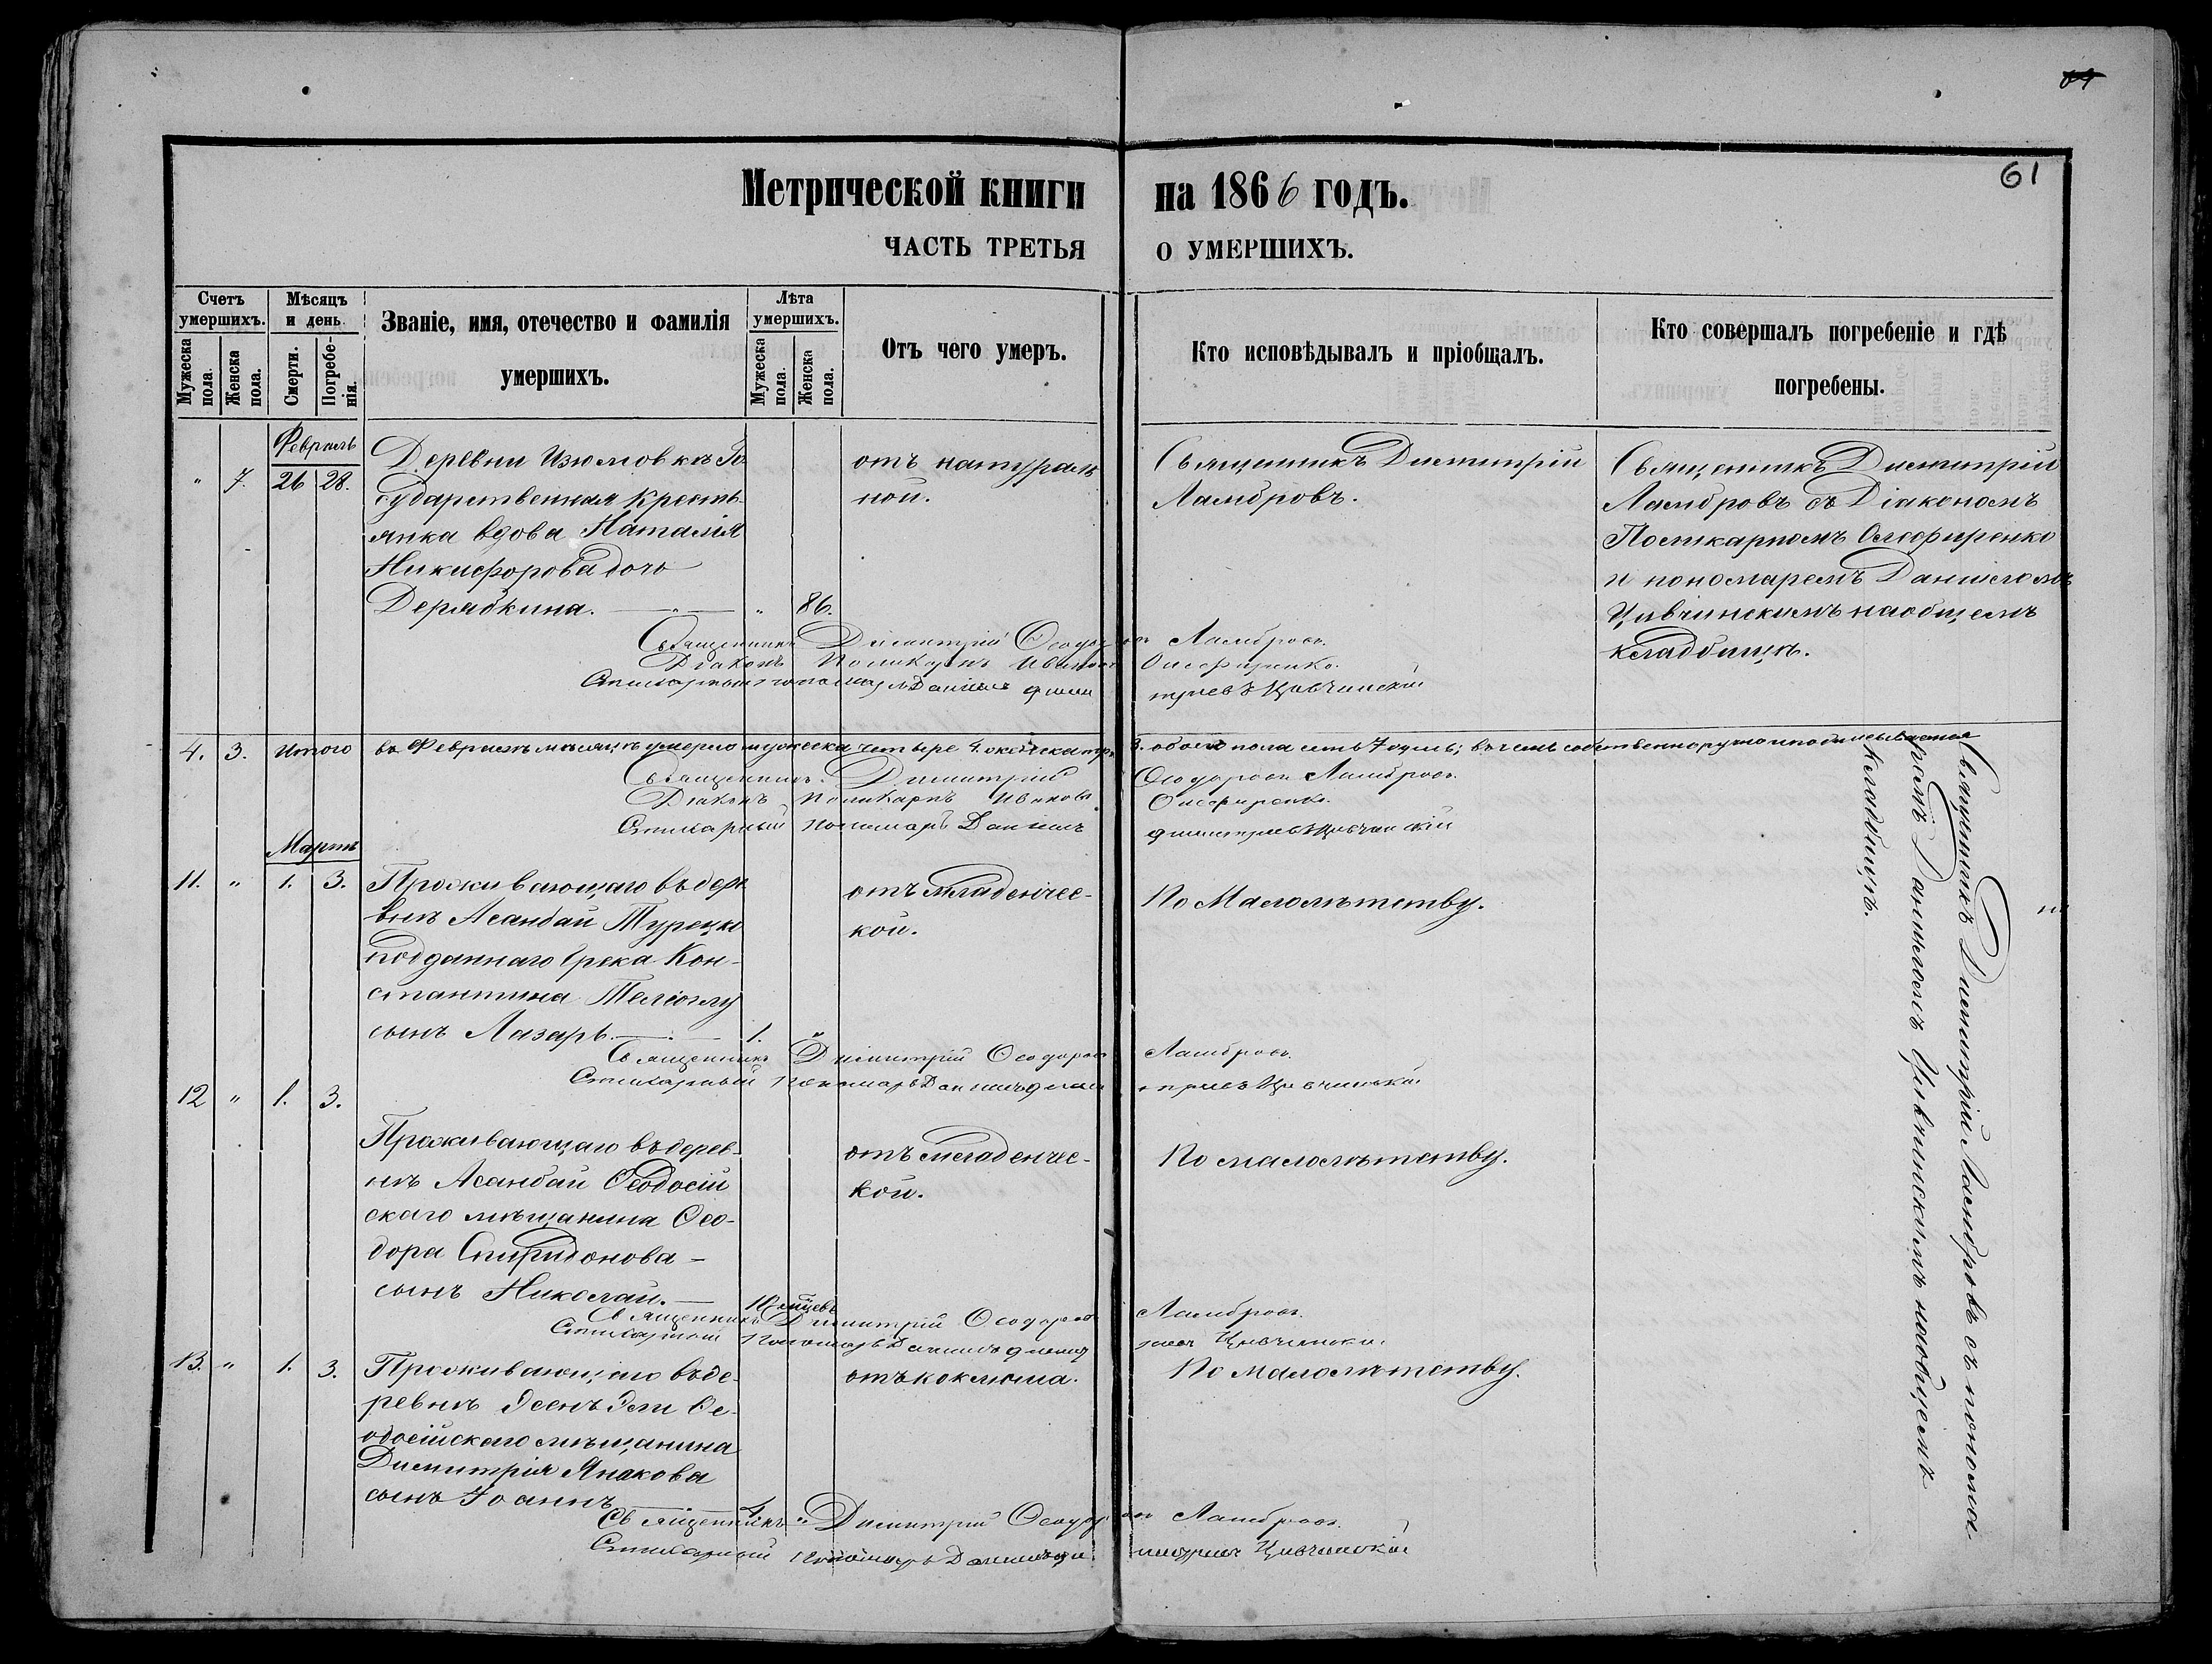 64
61
Метрической книги на 1866 годъ.
ЧАСТЬ ТРЕТЬЯ О УМЕРШИХЪ.
Счетъ умершихъ.
Мужеска пола.
Женска пола.
Мѣсяцъ и день.
Смерти.
Погребенія.
Званіе, имя, отечество и фамилія умершихъ.
Лѣта умершихъ.
Мужеска пола.
Женска пола.
Отъ чего умеръ.
Кто исповѣдывалъ и пріобщалъ.
Кто совершалъ погребеніе и гдѣ погребены.
Февраль
" 7. 26 28.
Деревни Изюмовкъ Го
сударственная кресть-
янка вдова Наталія
Никифорова дочь
Дерябкина. — " — " 86.
отъ натураль
ной.
Священникъ Димитрій
Ламбровъ.
Священникъ Димитрій
Ламбровъ съ Діакономъ
Поликарпомъ Олефиренко
и пономаремъ Даніиломъ
Цивчинскимъ на общемъ
кладбищѣ.
Священникъ Димитрій Ѳеодоровъ Ламбровъ.
Діаконъ Поликарпъ Ивановъ Олефиренко.
Стихарный пономарь Даніилъ Димитріевъ Цивчинскій
4. 3. Итого въ Февралѣ мѣсяцѣ умерло мужеска четыре 4. женска три 3. обоего пола семь 7 душъ; въ чемъ собственноручно и подписываемся
Священникъ Димитрій Ѳеодоровъ Ламбровъ.
Діаконъ Поликарпъ Ивановъ Олефиренко.
Стихарный пономарь Даніилъ Димитріевъ Цивчинскій
Мартъ
11. " 1. 3.
Проживающаго въ дере
внѣ Асанбай Турецко
подданнаго Грека Кон-
стантина Теліоглу
сынъ Лазарь. — 1. "
отъ младенчес-
кой.
По Малолѣтству.
Священникъ Димитрій Ѳеодоровъ Ламбровъ.
Стихарный Пономарь Даніилъ Димитріевъ Цивчинскій
12 " 1. 3.
Проживающаго въ дерев-
нѣ Асанбай Ѳеодосій
скаго мѣщанина Ѳео-
дора Спиридонова —
сынъ Николай. — 10 мѣцевъ
отъ младенчес-
кой.
По малолѣтству.
Священникъ Димитрій Ѳеодоровъ Ламбровъ.
Стихарный Пономарь Даніилъ Димитріевъ Цивчинскій
13. " 1. 3.
Проживающаго въ де-
ревнѣ Эсенъ Эли Ѳе-
одосійскаго мѣщанина
Димитрія Янакова
сынъ Іоаннъ
отъ коклюша.
По малолѣтству.
Священникъ Димитрій Ѳеодоровъ Ламбровъ.
Стихарный Пономарь Даніилъ Димитріевъ Цивчинскій
Священникъ Димитрій Ламбровъ съ понома-
ремъ Даніиломъ Цивчинскимъ на общемъ
кладбищѣ.